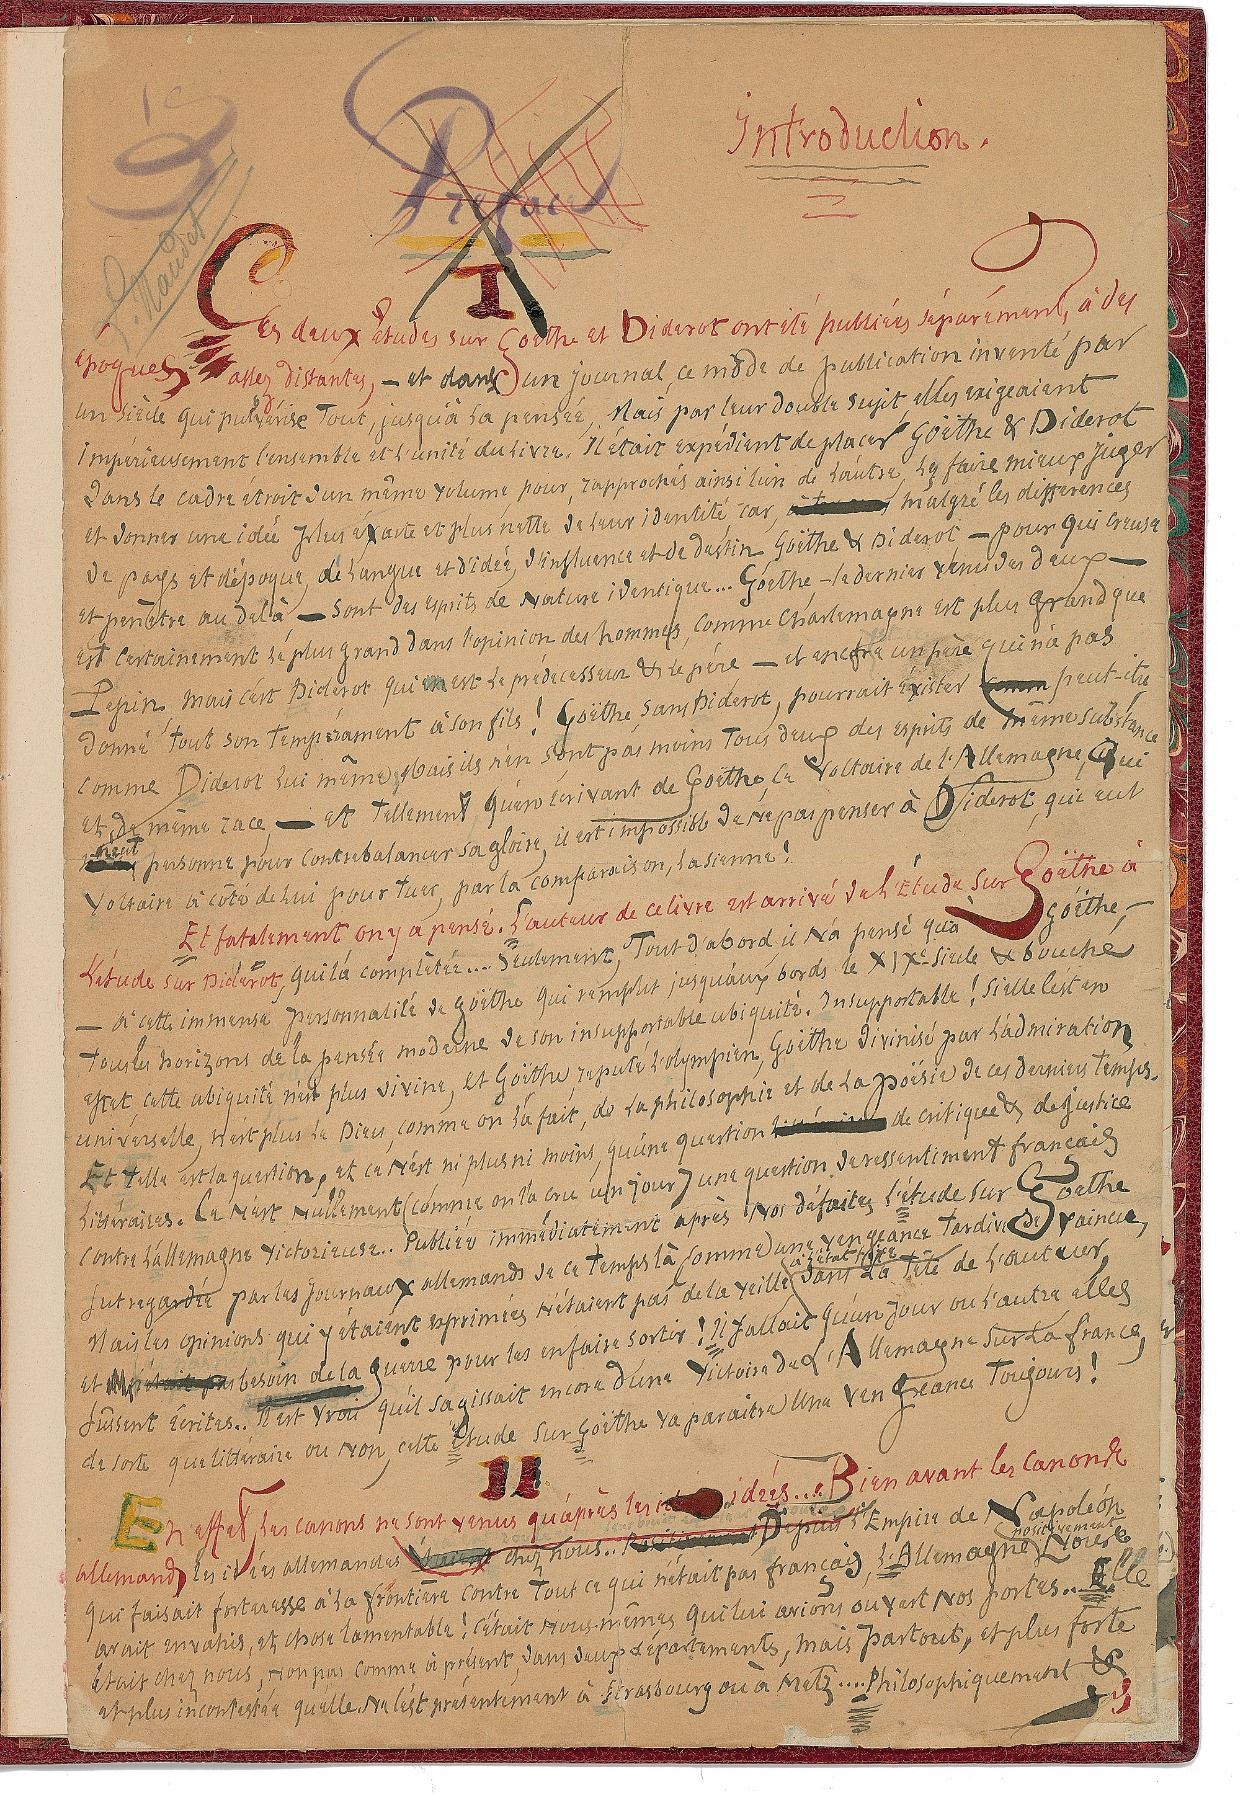 Introduction.
Préface
I
Ces deux Études sur Goëthe et Diderot ont été publiées séparément, à des
époques assez distantes, — et dans un journal, ce mode de publication inventé par
un siècle qui pulvérise tout, jusqu'à la pensée. Mais par leur double sujet, elles exigeaient
impérieusement l'ensemble et l'unité du livre. Il était expédient de placer Goëthe & Diderot
dans le cadre étroit d'un même volume pour, rapprochés ainsi l'un de l'autre, les faire mieux juger
et donner une idée plus éxacte et plus nette de leur identité car, malgré les différences
de pays et d'époque, de langue et d'idées, d'influence et de destin Goëthe & Diderot — pour qui creuse
et pénètre au delà — sont des esprits de Nature identique... Goëthe — le dernier venu des deux —
est certainement le plus grand dans l'opinion des hommes, comme Charlemagne est plus grand que
Pepin. Mais c'est Diderot qui en est le prédécesseur & le père — et encore un père qui n'a pas
donné tout son tempérament à son fils! Goëthe sans Diderot, pourrait éxister peut-être
comme Diderot lui même, Mais ils n'en sont pas moins tous deux des esprits de même substance
et de même race, — et tellement, qu'en écrivant de Goëthe, ce Voltaire de l'Allemagne, Qui
n'eut personne pour contrebalancer sa gloire, il est impossible de Ne pas penser à Diderot, qui eut
Voltaire à côté de lui pour tuer, par la comparaison, la sienne!
Et fatalement on y a pensé. L'auteur de ce livre est arrivé de l'Étude sur Goëthe à
l'étude sur Diderot, qui l'a complétée.... Seulement, Tout d'abord il N'a pensé qu'à Goëthe, —
— à cette immense personnalité de Goëthe qui remplit jusqu'aux bords le XIXe siècle & bouche
tous les horizons de la pensée moderne de son insupportable ubiquité. Insupportable! Si elle l'est en
effet, cette ubiquité n'est plus divine, et Goëthe réputé l'olympien, Goëthe divinisé par l'admiration
universelle, n'est plus le Dieu, comme on l'a fait, de la philosophie et de la Poësie de ces derniers temps.
Et telle est la question, et ce N'est ni plus ni moins, qu'une question de critique & de justice
littéraires. Ce N'est Nullement (comme on l'a cru un jour) une question de ressentiment français
contre l'allemagne victorieuse.. Publiée immédiatement après Nos défaites, l'étude sur Goëthe
fut regardée par les journaux allemands de ce temps là comme une vengeance tardive de vaincu,
Mais les opinions qui y étaient exprimées N'étaient pas de la veille dans la tête de l'auteur,
et besoin de la guerre pour les en faire sortir! Il fallait qu'un jour ou l'autre elles
fussent écrites.. Il est vrai qu'il s'agissait encore d'une victoire de l'Allemagne sur la france,
de sorte que littéraire ou Non, cette Étude sur Goëthe va paraître Une vengeance Toujours!
II
En effet, les canons ne sont venus qu'après les idées... Bien avant les canons
allemands les idées allemandes chez nous.. Depuis l'Empire de Napoléon
positivement
qui faisait forteresse à la frontière contre tout ce qui n'était pas français, L'Allemagne
avait envahis, et chose lamentable! c'était Nous-mêmes qui lui avions ouvert Nos portes... Elle
était chez nous, Non pas comme à présent, dans deux départements, mais Partout, et plus forte
et plus incontestée qu'elle Ne l'est présentement à Strasbourg ou à Metz.... Philosophiquement &